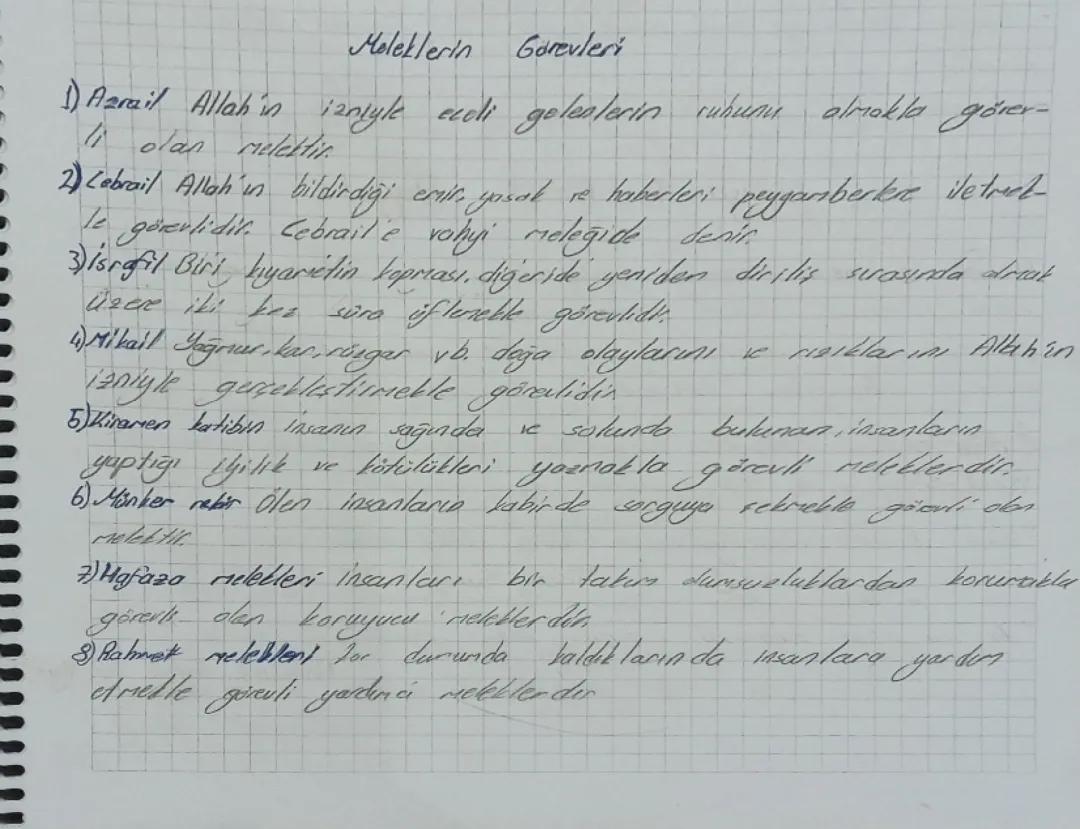 Meleklerin Görevleri
1) Azrail Allah'ın izniyle eceli gelenlerin ruhunu almakla görev-
li olan melektir.
2) Cebrail Allah'ın bildirdiği emir, yasak ve haberleri peygamberlere iletmek-
le görevlidir. Cebrail'e vahyi meleğide denir.
3) İsrafil Biri kıyametin kopması, diğeride yeniden diriliş sırasında olmak
üzere iki kez sûra üflemekle görevlidir.
4) Mikail Yağmur, kar, rüzgar vb. doğa olaylarını ve rızıklarını Allah'ın
izniyle gerçekleştirmekle görevlidir.
5) Kiramen katibin insanın sağında ve solunda bulunan, insanların
yaptığı iyilik ve kötülükleri yazmakla görevli meleklerdir.
6) Münker nekir Ölen insanların kabirde sorguya çekmekle görevli olan
melektir.
7) Hafaza melekleri insanları bir takım olumsuzluklardan korumakla
görevli olan koruyucu meleklerdir.
8) Rahmet melekleri Zor durumda kaldıklarında insanlara yardım
etmekle görevli yardımcı meleklerdir